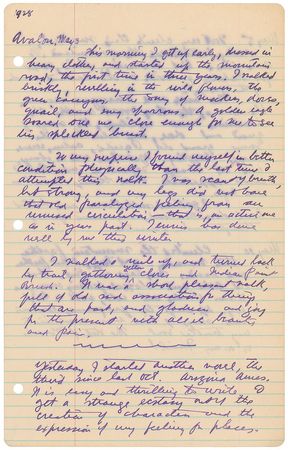 1928
Avalon, May 3
This morning I got up early, dressed in
heavy clothes, and started up the mountain
road, the first time in three years. I walked
briskly, revelling in the wild flowers, the
green canyons, the songs of mocker, dove,
quail, and song sparrows. A golden eagle
soared over me close enough for me to see
his speckled breast.
To my surprise I found myself in better
condition physically than the last time I
attempted this walk. I was scant of breath,
but strong, and my legs did not have
that old paralyzed feeling from an
unused circulation — that is, an active one
as in years past. Tennis has done
well by me this winter.
I walked a mile up, and turned back
by trail, gathering yellow clover and Indian Paint
Brush. It was a most pleasant walk,
full of sad association for things
that are past, and gladness and joy
for the present with all its beauty
and pain.
Yesterday I started another novel, the
third since last Oct. Arizona Ames.
It is easy and thrilling to write. I
get a strange ecstasy out of the
creation of characters and the
expression of my feeling for places.